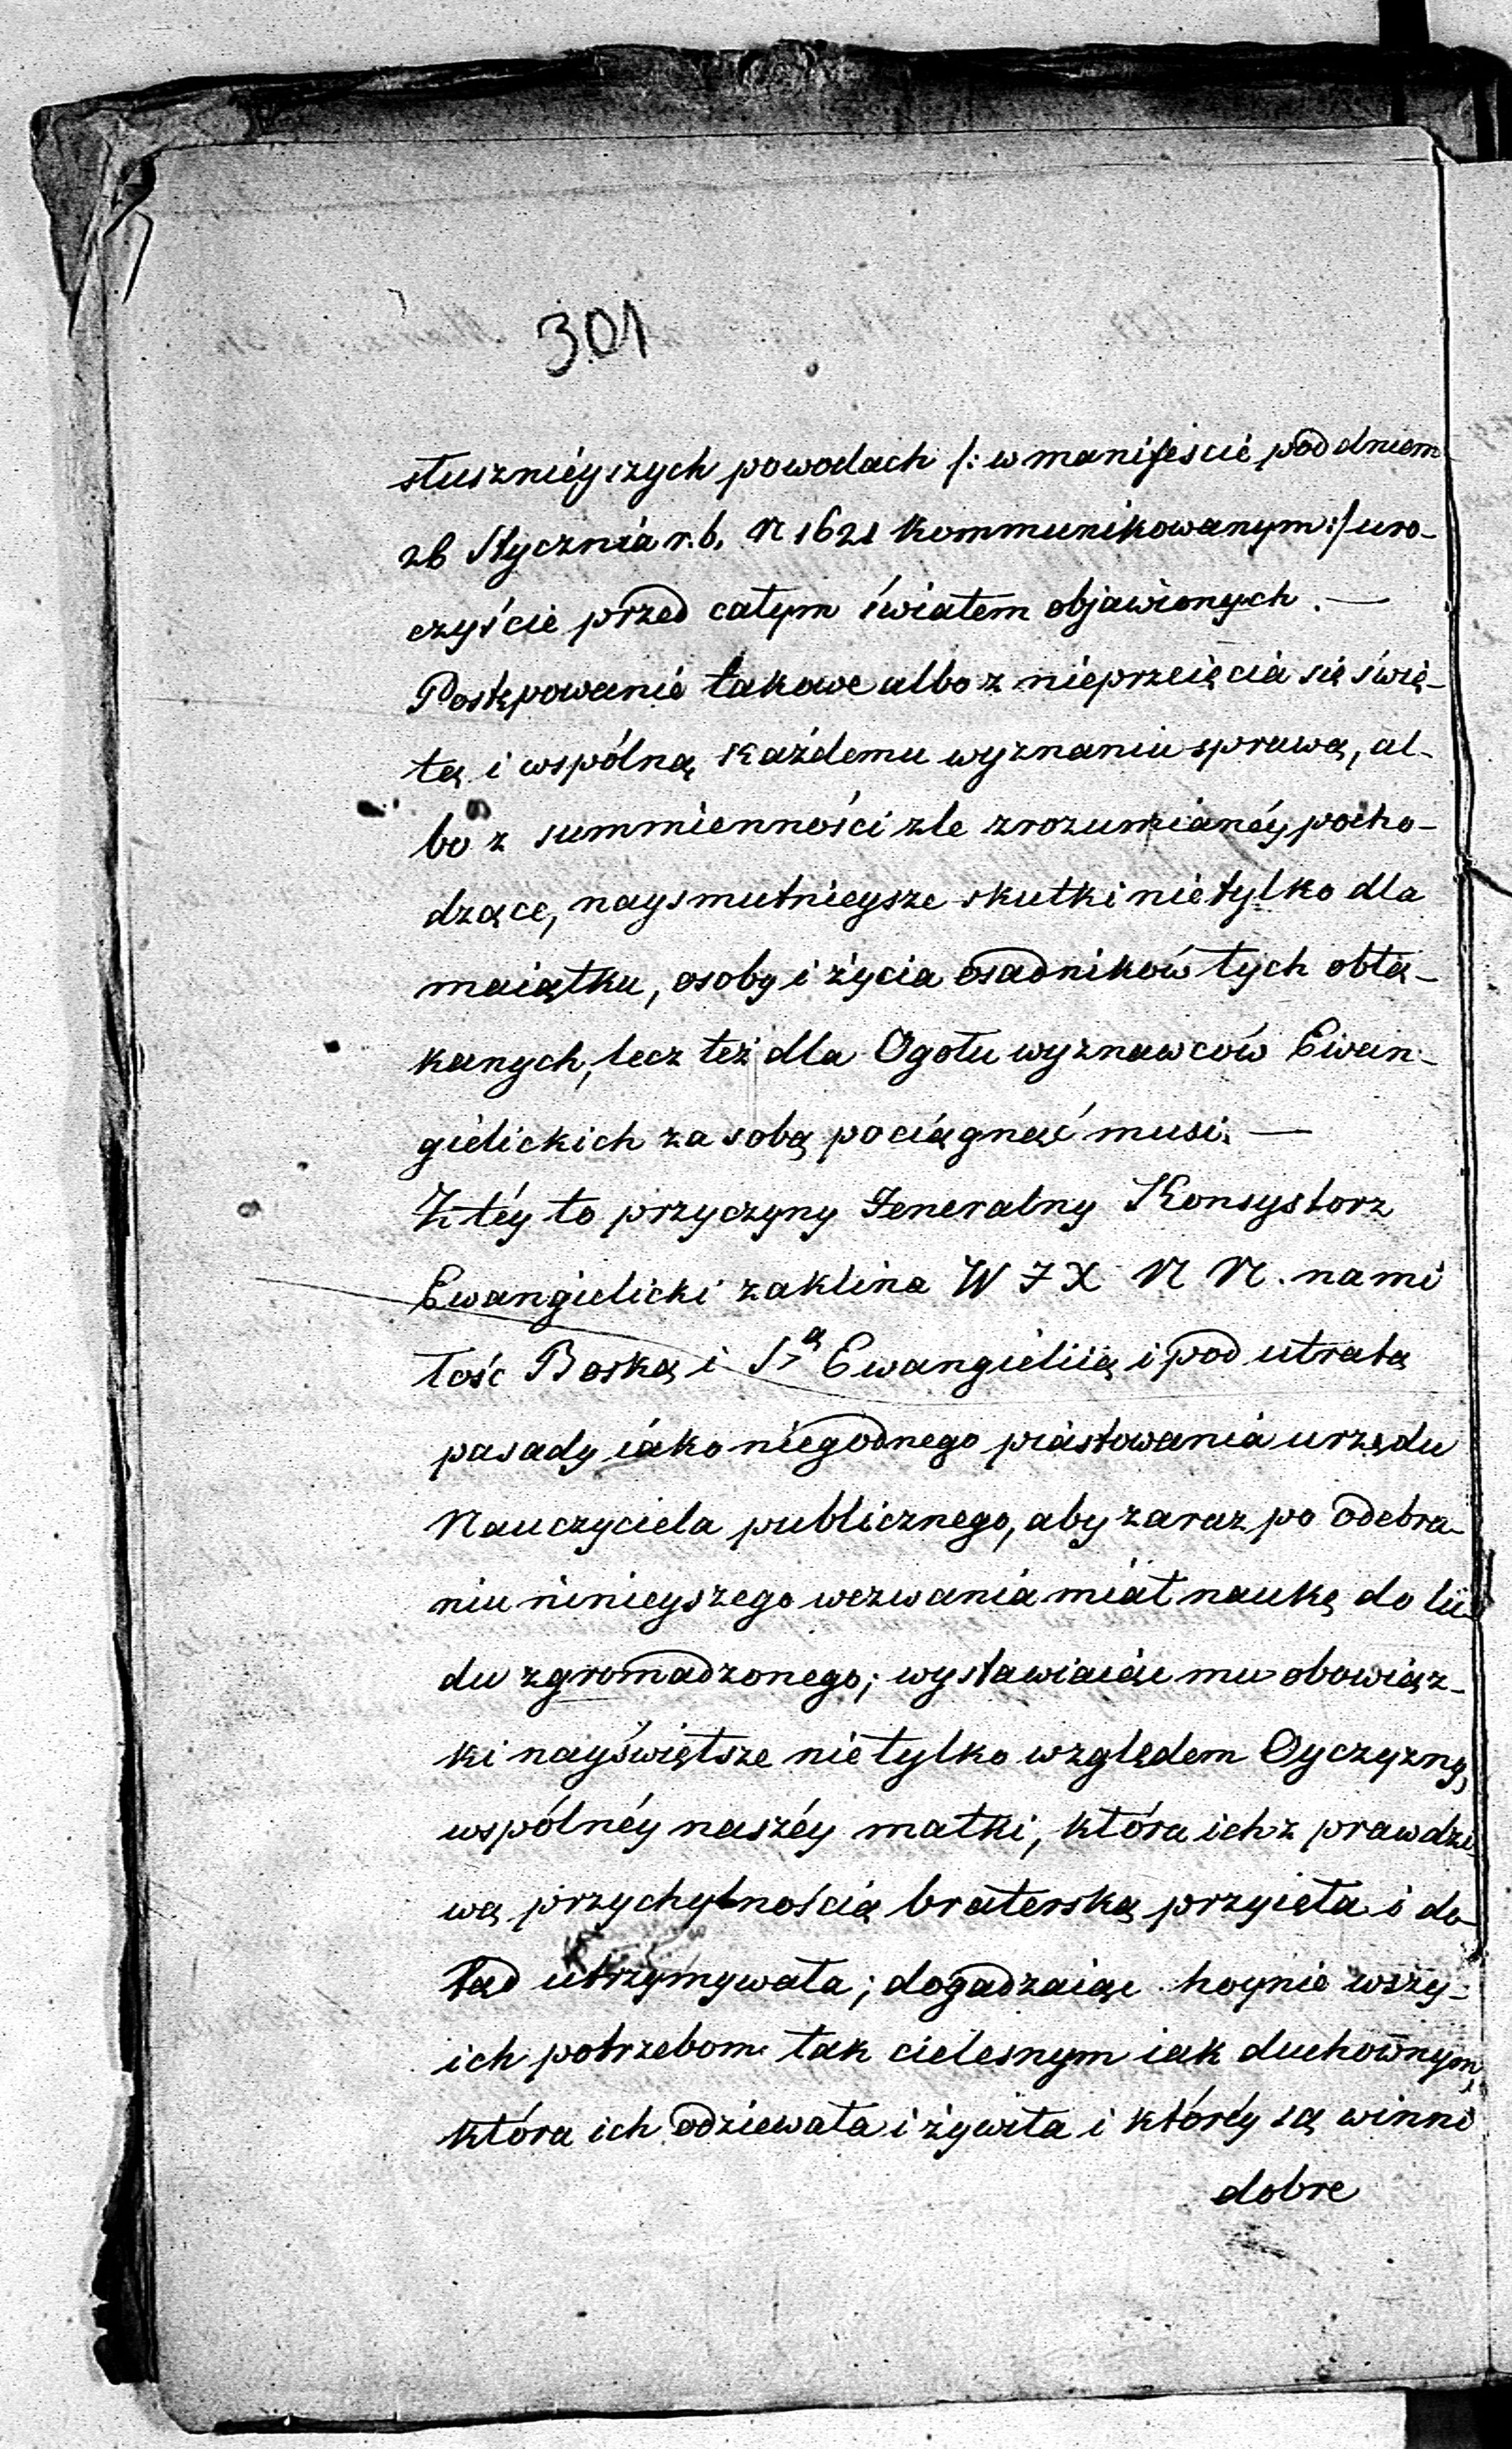 301
słusznieyszych powodach /: w manifeście pod dniem
26 Stycznia r. b. N 1621 kommunikowanym :/ uro-
czyście przed całym światem objawionych. —
Postępowanie takowe albo z nieprzeięcia się świę-
tą i wspólną każdemu wyznaniu sprawą, al-
bo z summienności źle zrozumianéy pocho-
dzące, naysmutnieysze skutki nie tylko dla
maiątku, osoby i życia osadników tych obłą-
kanych, lecz też dla Ogołu wyznawców Ewan-
gielickich za sobą pociągnąć musi. —
Z téy to przyczyny Jeneralny Konsystorz
Ewangielicki zaklina W J X N N. na mi
łość Boską i Stą Ewangieliią i pod utratą
posady iako niegodnego piastowania urzędu
Nauczyciela publicznego, aby zaraz po odebra-
niu ninieyszego wezwania miał naukę do lu-
du zgromadzonego; wystawiaiąc mu obowiąz-
ki nayświętsze nie tylko względem Oyczyzny,
wspólnéy naszéy matki, która ich z prawdzi-
wą przychylnością braterską przyięła i do-
tąd utrzymywała; dogadzaiąc hoynie wszy-
ich potrzebom tak cielesnym iak duchownym,
która ich odziewała i żywiła i któréy są winni
dobre